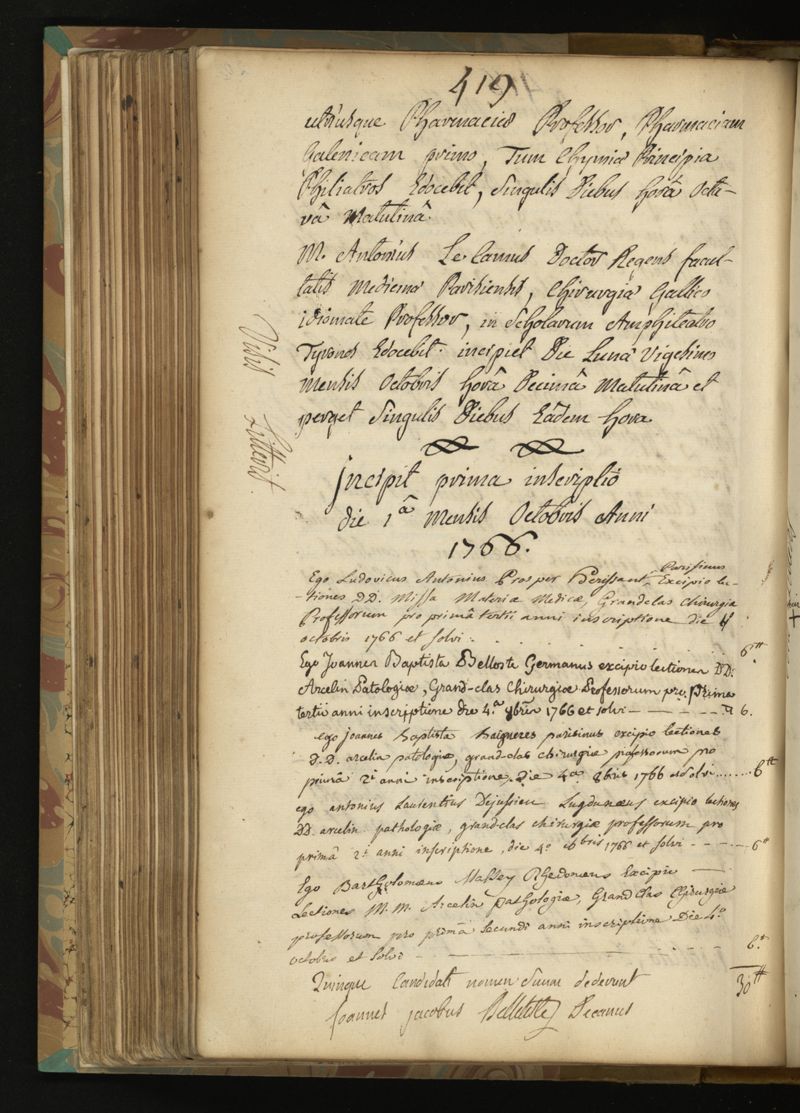 419
utriusque Pharmaciæ Professor, Pharmaciam
Galenicam primo, Tum Chymiæ Principia
Philiatros Edocebit, Singulis Diebus horâ Octa-
vâ Matutinâ.
M. Antonius Le Camus Doctor Regens facul-
tatis Medicinæ Parisiensis, Chirurgiæ Gallico
idiomate Professor, in Scholarum Amphiteatro
Tyrones Edocebit. incipiet Die Lunæ Vigesimo
Mensis Octobris horâ Decimâ Matutinâ et
perget Singulis Diebus Eâdem hora
Visis Litteris.
Incipit prima inscriptio
die 1â Mensis Octobris Anni
1766.
Ego Ludovicus Antonius Prosper Herissant Parisinus Excipio lec-
-tiones DD. Missa Materiæ Medicæ, Grandclas Chirurgiæ
Professorum pro primâ tertii anni inscriptione die 4
octobris 1766 et solvi . . . . . 6tt
Ego Joannes Baptista Bellosta Germanus excipio lectiones DD.
Arcelin Patologiæ, Grand-clas Chirurgiæ Professorum pro prima
tertii anni inscriptione die 4.a 8bris 1766 et solvi ———— 6.
ego joannes baptista baigneres parisinus excipio lectiones
D.D. arcelin patologiæ, grandclas chirurgiæ professorum pro
primâ 2i anni inscriptione. Die 4a 8bris 1766 et solvi ....... 6tt
ego antonius Laurentius Dejussieu Lugdunæus excipio lectiones
DD. arcelin pathologiæ, grandclas chirurgiæ professorum pro
primâ 2i anni inscriptione, die 4o 8bris 1766 et solvi - - - - - 6tt
Ego Bartholomæus Massey Rhedonens Excipio —
Lectiones M.M. Arcelin pathologiæ, Grand Clas Chirurgiæ
professorum pro primâ secundi anni inscriptione Die 4.a
octobris et solvi - - - - - 6.tt
Quinque Candidati nomen Suum dederunt 30tt
Joannes jacobus Belleteste Decanus